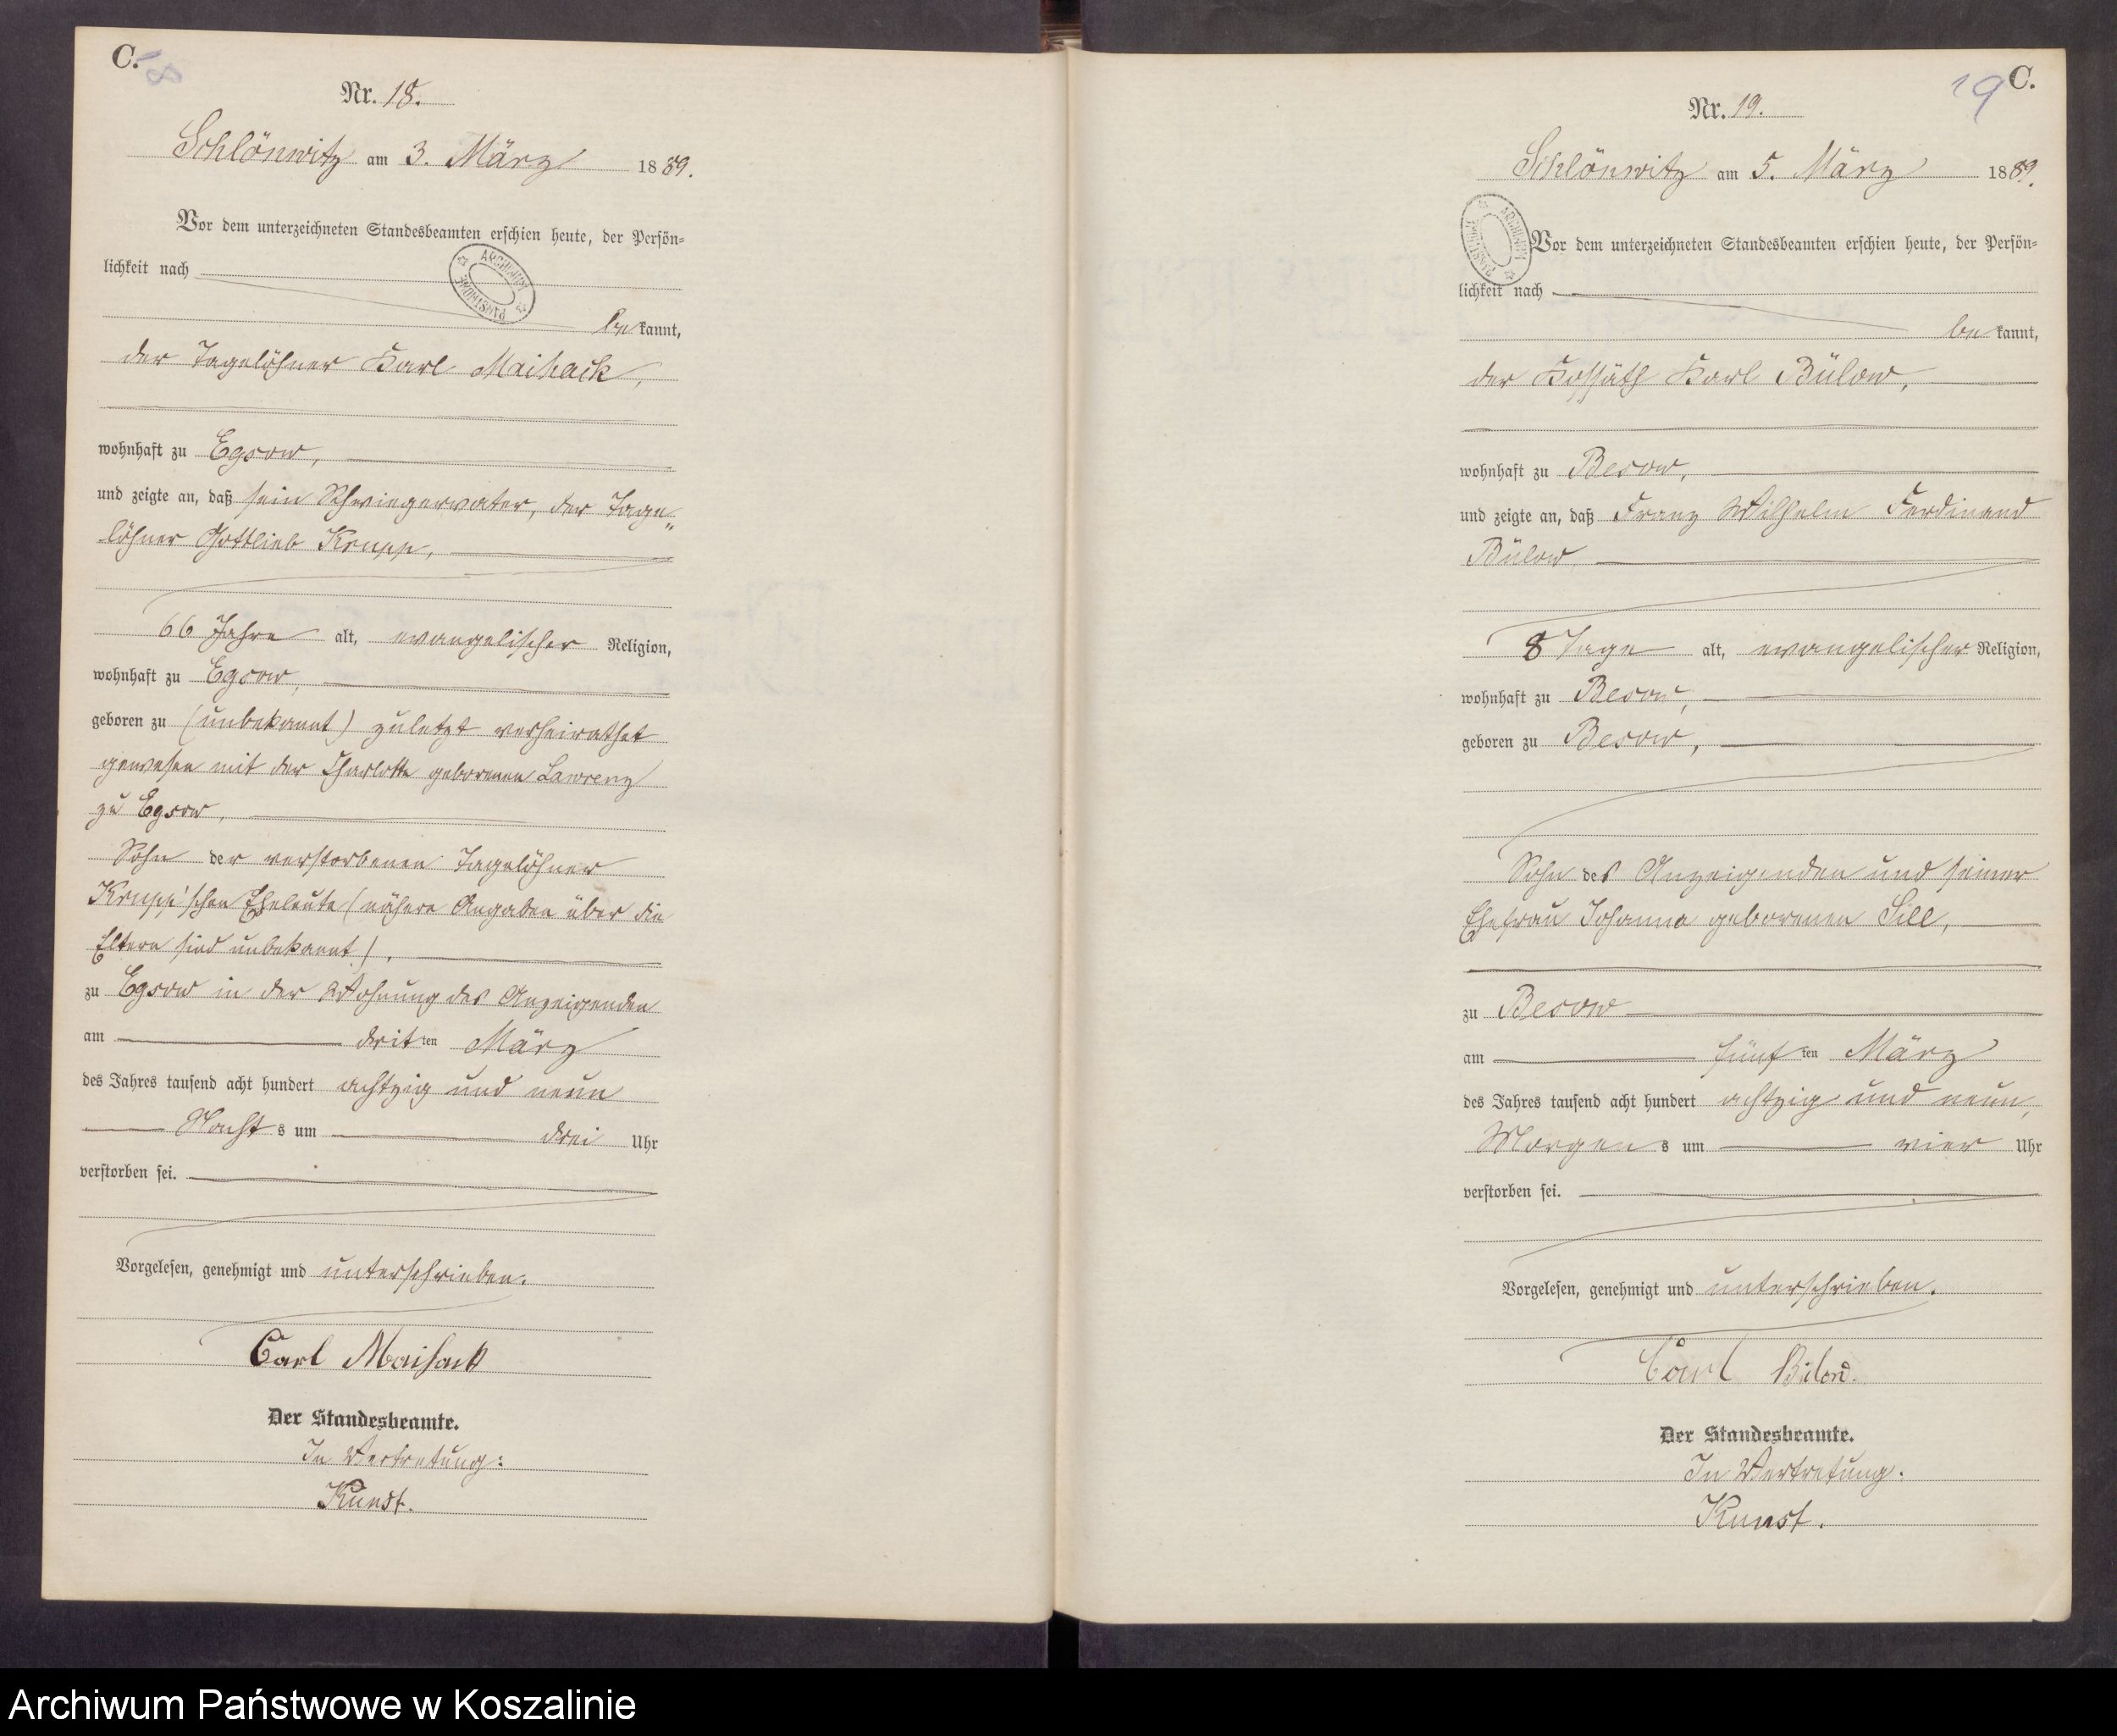 C.
18
Nr. 18.
Schlönwitz am 3. März 1889.
Vor dem unterzeichneten Standesbeamten erschien heute, der Persön-
lichkeit nach
bekannt,
der Tagelöhner Karl Maihack,
wohnhaft zu Egsow,
und zeigte an, daß sein Schwiegervater, der Tage-
löhner Gottlieb Krupp,
66 Jahre alt, evangelischer Religion,
wohnhaft zu Egsow,
geboren zu (unbekannt) zuletzt verheirathet
gewesen mit der Charlotte geborenen Lawrenz
zu Egsow,
Sohn der verstorbenen Tagelöhner
Krupp'schen Eheleute (nähere Angaben über die
Eltern sind unbekannt),
zu Egsow in der Wohnung des Anzeigenden
am dritten März
des Jahres tausend acht hundert achtzig und neun
Nachts um drei Uhr
verstorben sei.
Vorgelesen, genehmigt und unterschrieben.
Carl Maihack
Der Standesbeamte.
In Vertretung:
Kunst.
ARCHIWUM PAŃSTWOWE
19
C.
Nr. 19.
Schlönwitz am 5. März 1889.
Vor dem unterzeichneten Standesbeamten erschien heute, der Persön-
lichkeit nach
bekannt,
der Kossäth Karl Bülow,
wohnhaft zu Besow,
und zeigte an, daß Franz Wilhelm Ferdinand
Bülow,
8 Tage alt, evangelischer Religion,
wohnhaft zu Besow,
geboren zu Besow,
Sohn des Anzeigenden und seiner
Ehefrau Johanna geborenen Sill,
zu Besow
am fünften März
des Jahres tausend acht hundert achtzig und neun,
Morgens um vier Uhr
verstorben sei.
Vorgelesen, genehmigt und unterschrieben.
Carl Bülow.
Der Standesbeamte.
In Vertretung.
Kunst.
ARCHIWUM PAŃSTWOWE
Archiwum Państwowe w Koszalinie